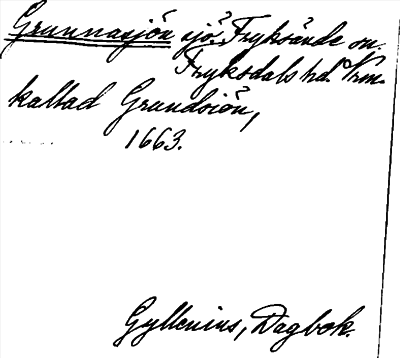 Grunnasjön sjö, Fryksände sn.
Fryksdals hd. Vrm.
kallad Grundsiön,
1663.
Gyllenius, Dagbok.